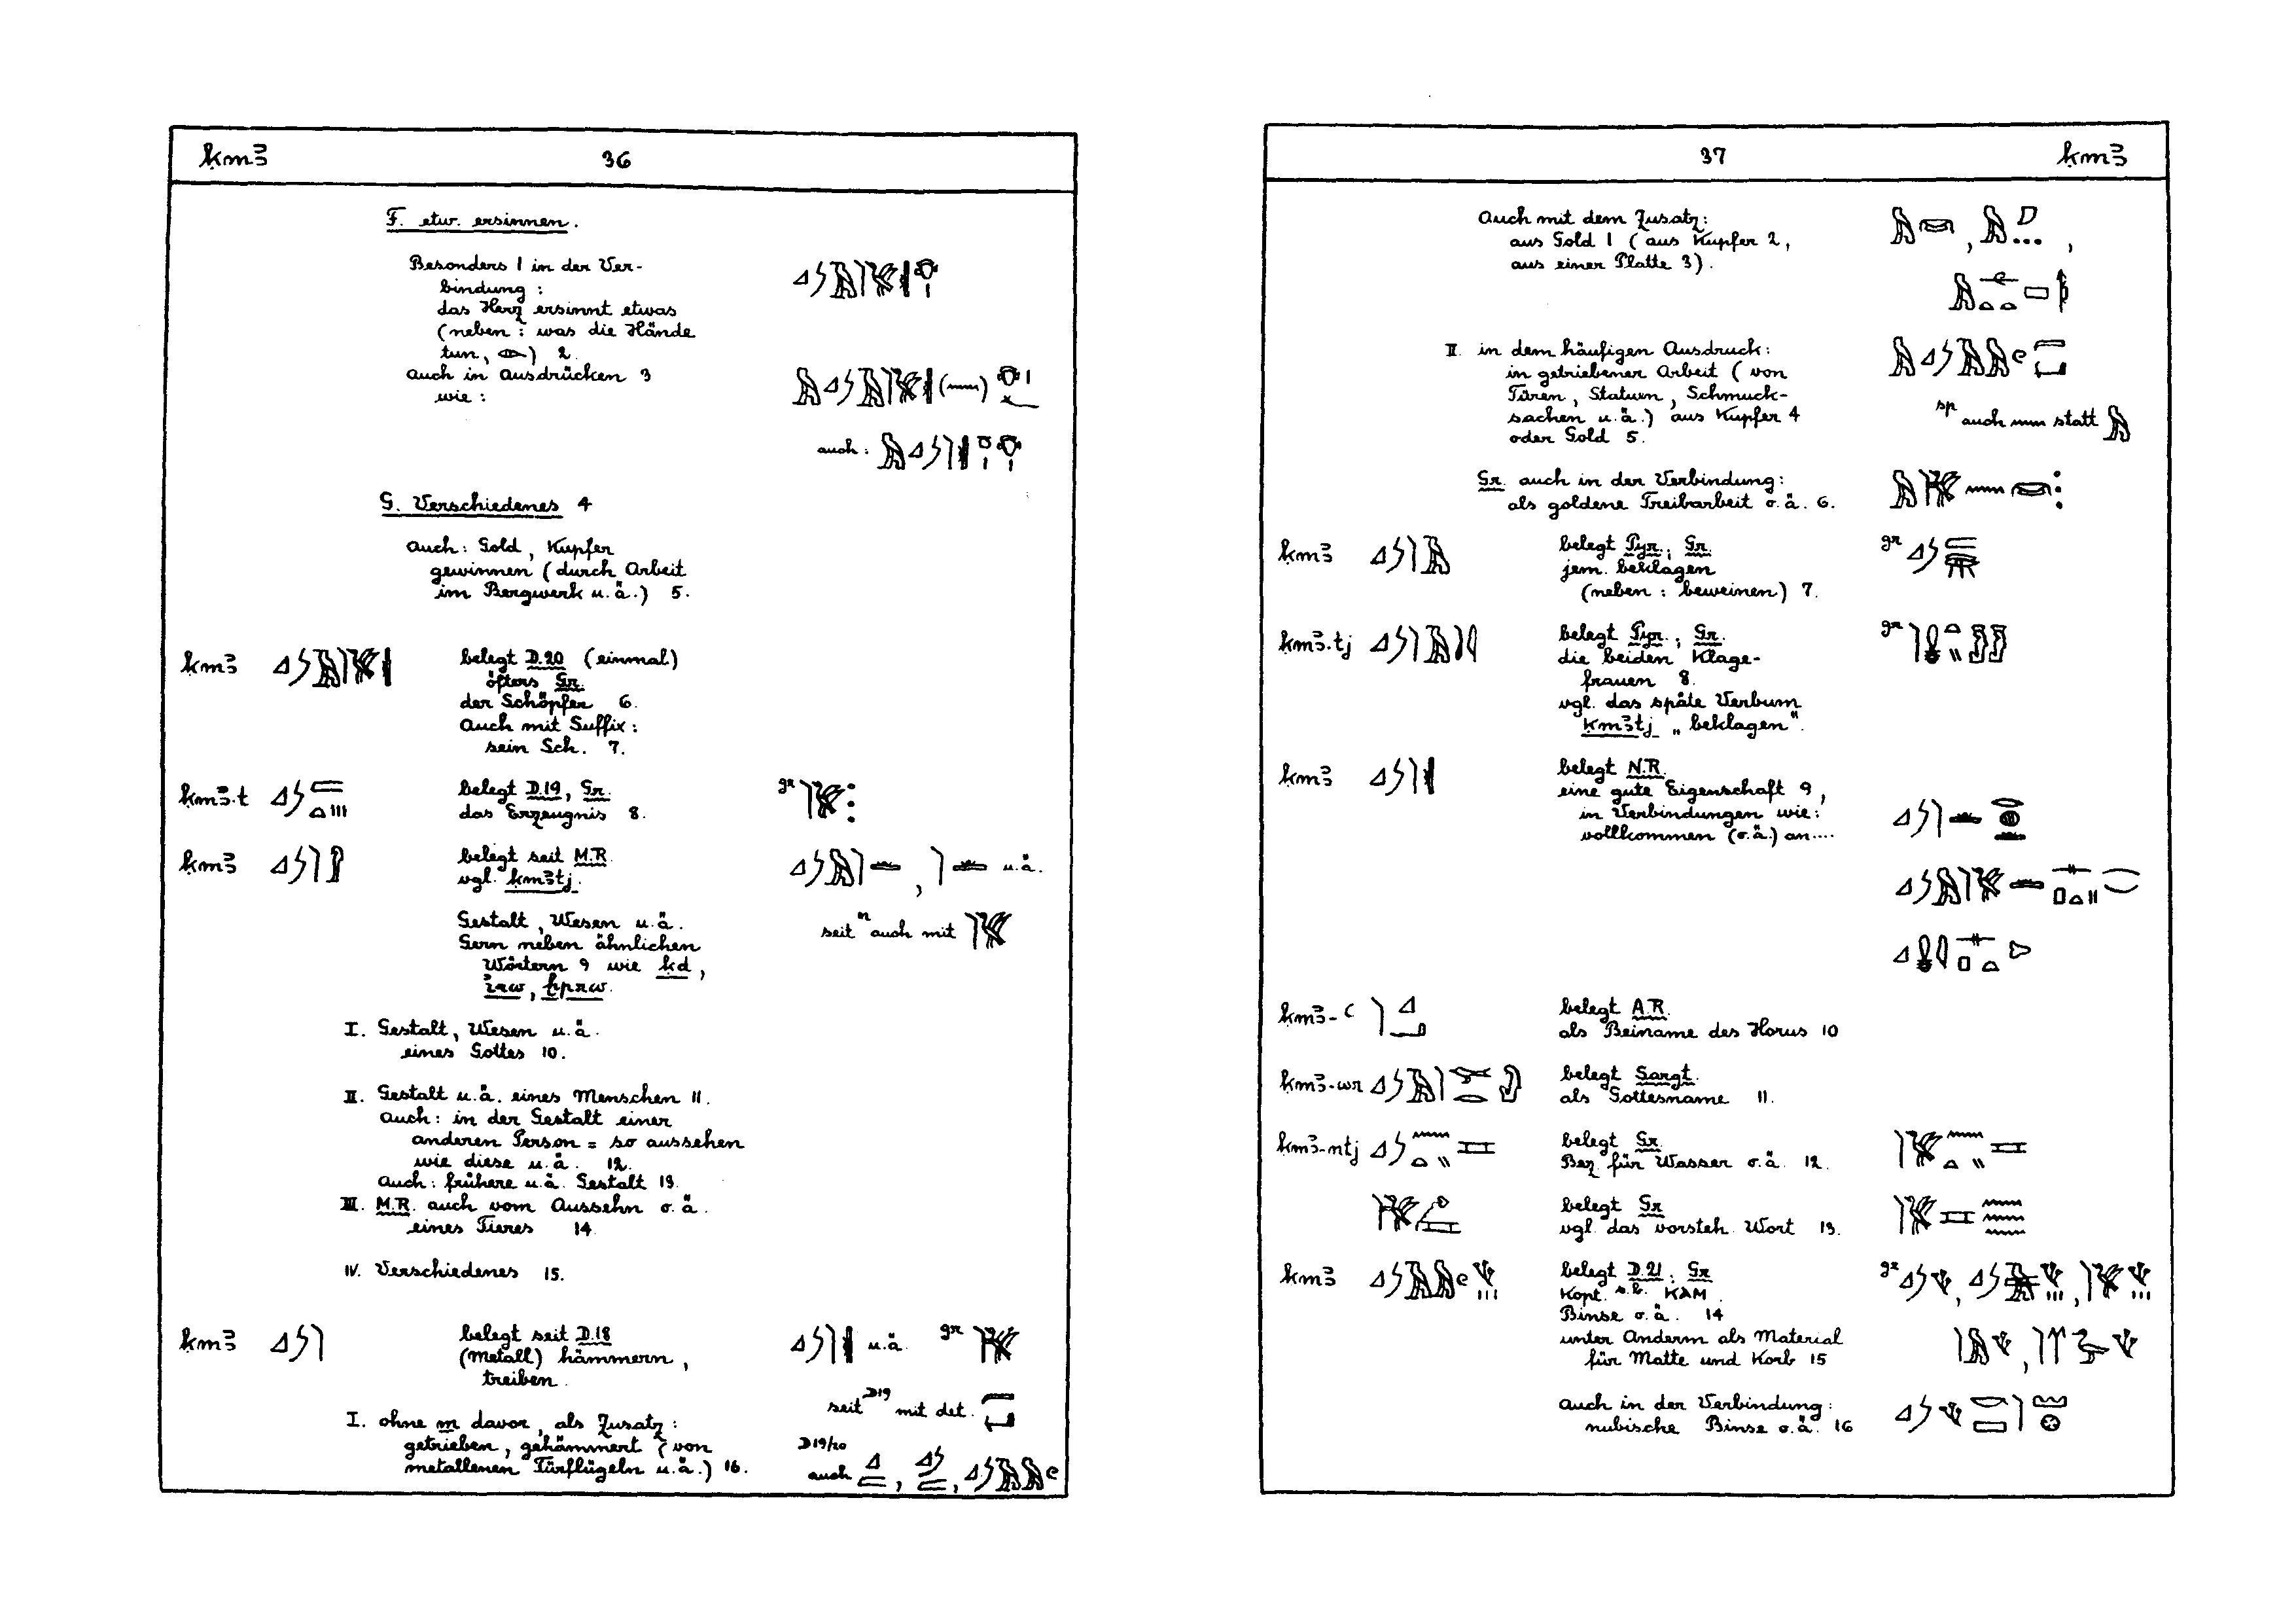 ḳmꜣ 36
F. etw. ersinnen.
Besonders 1 in der Ver-
bindung:
das Herz ersinnt etwas
(neben: was die Hände
tun, ) 2.
auch in Ausdrücken 3
wie:
auch:
G. Verschiedenes 4
auch: Gold, Kupfer
gewinnen (durch Arbeit
im Bergwerk u.ä.) 5.
ḳmꜣ belegt D.20 (einmal)
öfters Gr.
der Schöpfer 6.
Auch mit Suffix:
sein Sch. 7.
ḳmꜣ.t belegt D.19, Gr. gr
das Erzeugnis 8.
ḳmꜣ belegt seit M.R.
vgl. ḳmꜣtj. , u.ä.
Gestalt, Wesen u.ä. seit n auch mit
Gern neben ähnlichen
Wörtern 9 wie ḳd,
irw, ḫprw.
I. Gestalt, Wesen u.ä.
eines Gottes 10.
II. Gestalt u.ä. eines Menschen 11.
auch: in der Gestalt einer
anderen Person = so aussehen
wie diese u.ä. 12.
auch: frühere u.ä. Gestalt 13.
III. M.R. auch vom Aussehn o.ä.
eines Tieres 14.
IV. Verschiedenes 15.
ḳmꜣ belegt seit D.18 u.ä. gr
(Metall) hämmern,
treiben.
seit D19 mit det.
I. ohne m davor, als Zusatz:
getrieben, gehämmert (von D19/20
metallenen Türflügeln u.ä.) 16. auch , ,
37 ḳmꜣ
Auch mit dem Zusatz:
aus Gold 1 (aus Kupfer 2, , ,
aus einer Platte 3).
II. in dem häufigen Ausdruck:
in getriebener Arbeit (von
Türen, Statuen, Schmuck-
sachen u.ä.) aus Kupfer 4 sp auch statt
oder Gold 5.
Gr. auch in der Verbindung:
als goldene Treibarbeit o.ä. 6.
ḳmꜣ belegt Pyr.; Gr. gr
jem. beklagen
(neben: beweinen) 7.
ḳmꜣ.tj belegt Pyr.; Gr. gr
die beiden Klage-
frauen 8.
vgl. das späte Verbum
ḳmꜣtj „beklagen".
ḳmꜣ belegt N.R.
eine gute Eigenschaft 9,
in Verbindungen wie:
vollkommen (o.ä.) an....
ḳmꜣ-ꜥ belegt A.R.
als Beiname des Horus 10
ḳmꜣ-wr belegt Sargt.
als Gottesname 11.
ḳmꜣ-ntj belegt Gr.
Bez. für Wasser o.ä. 12.
belegt Gr
vgl. das vorsteh. Wort 13.
ḳmꜣ belegt D.21; Gr gr , ,
Kopt. s.b. ⲔⲀⲘ.
Binse o.ä. 14
unter Anderm als Material
für Matte und Korb 15 ,
auch in der Verbindung:
nubische Binse o.ä. 16